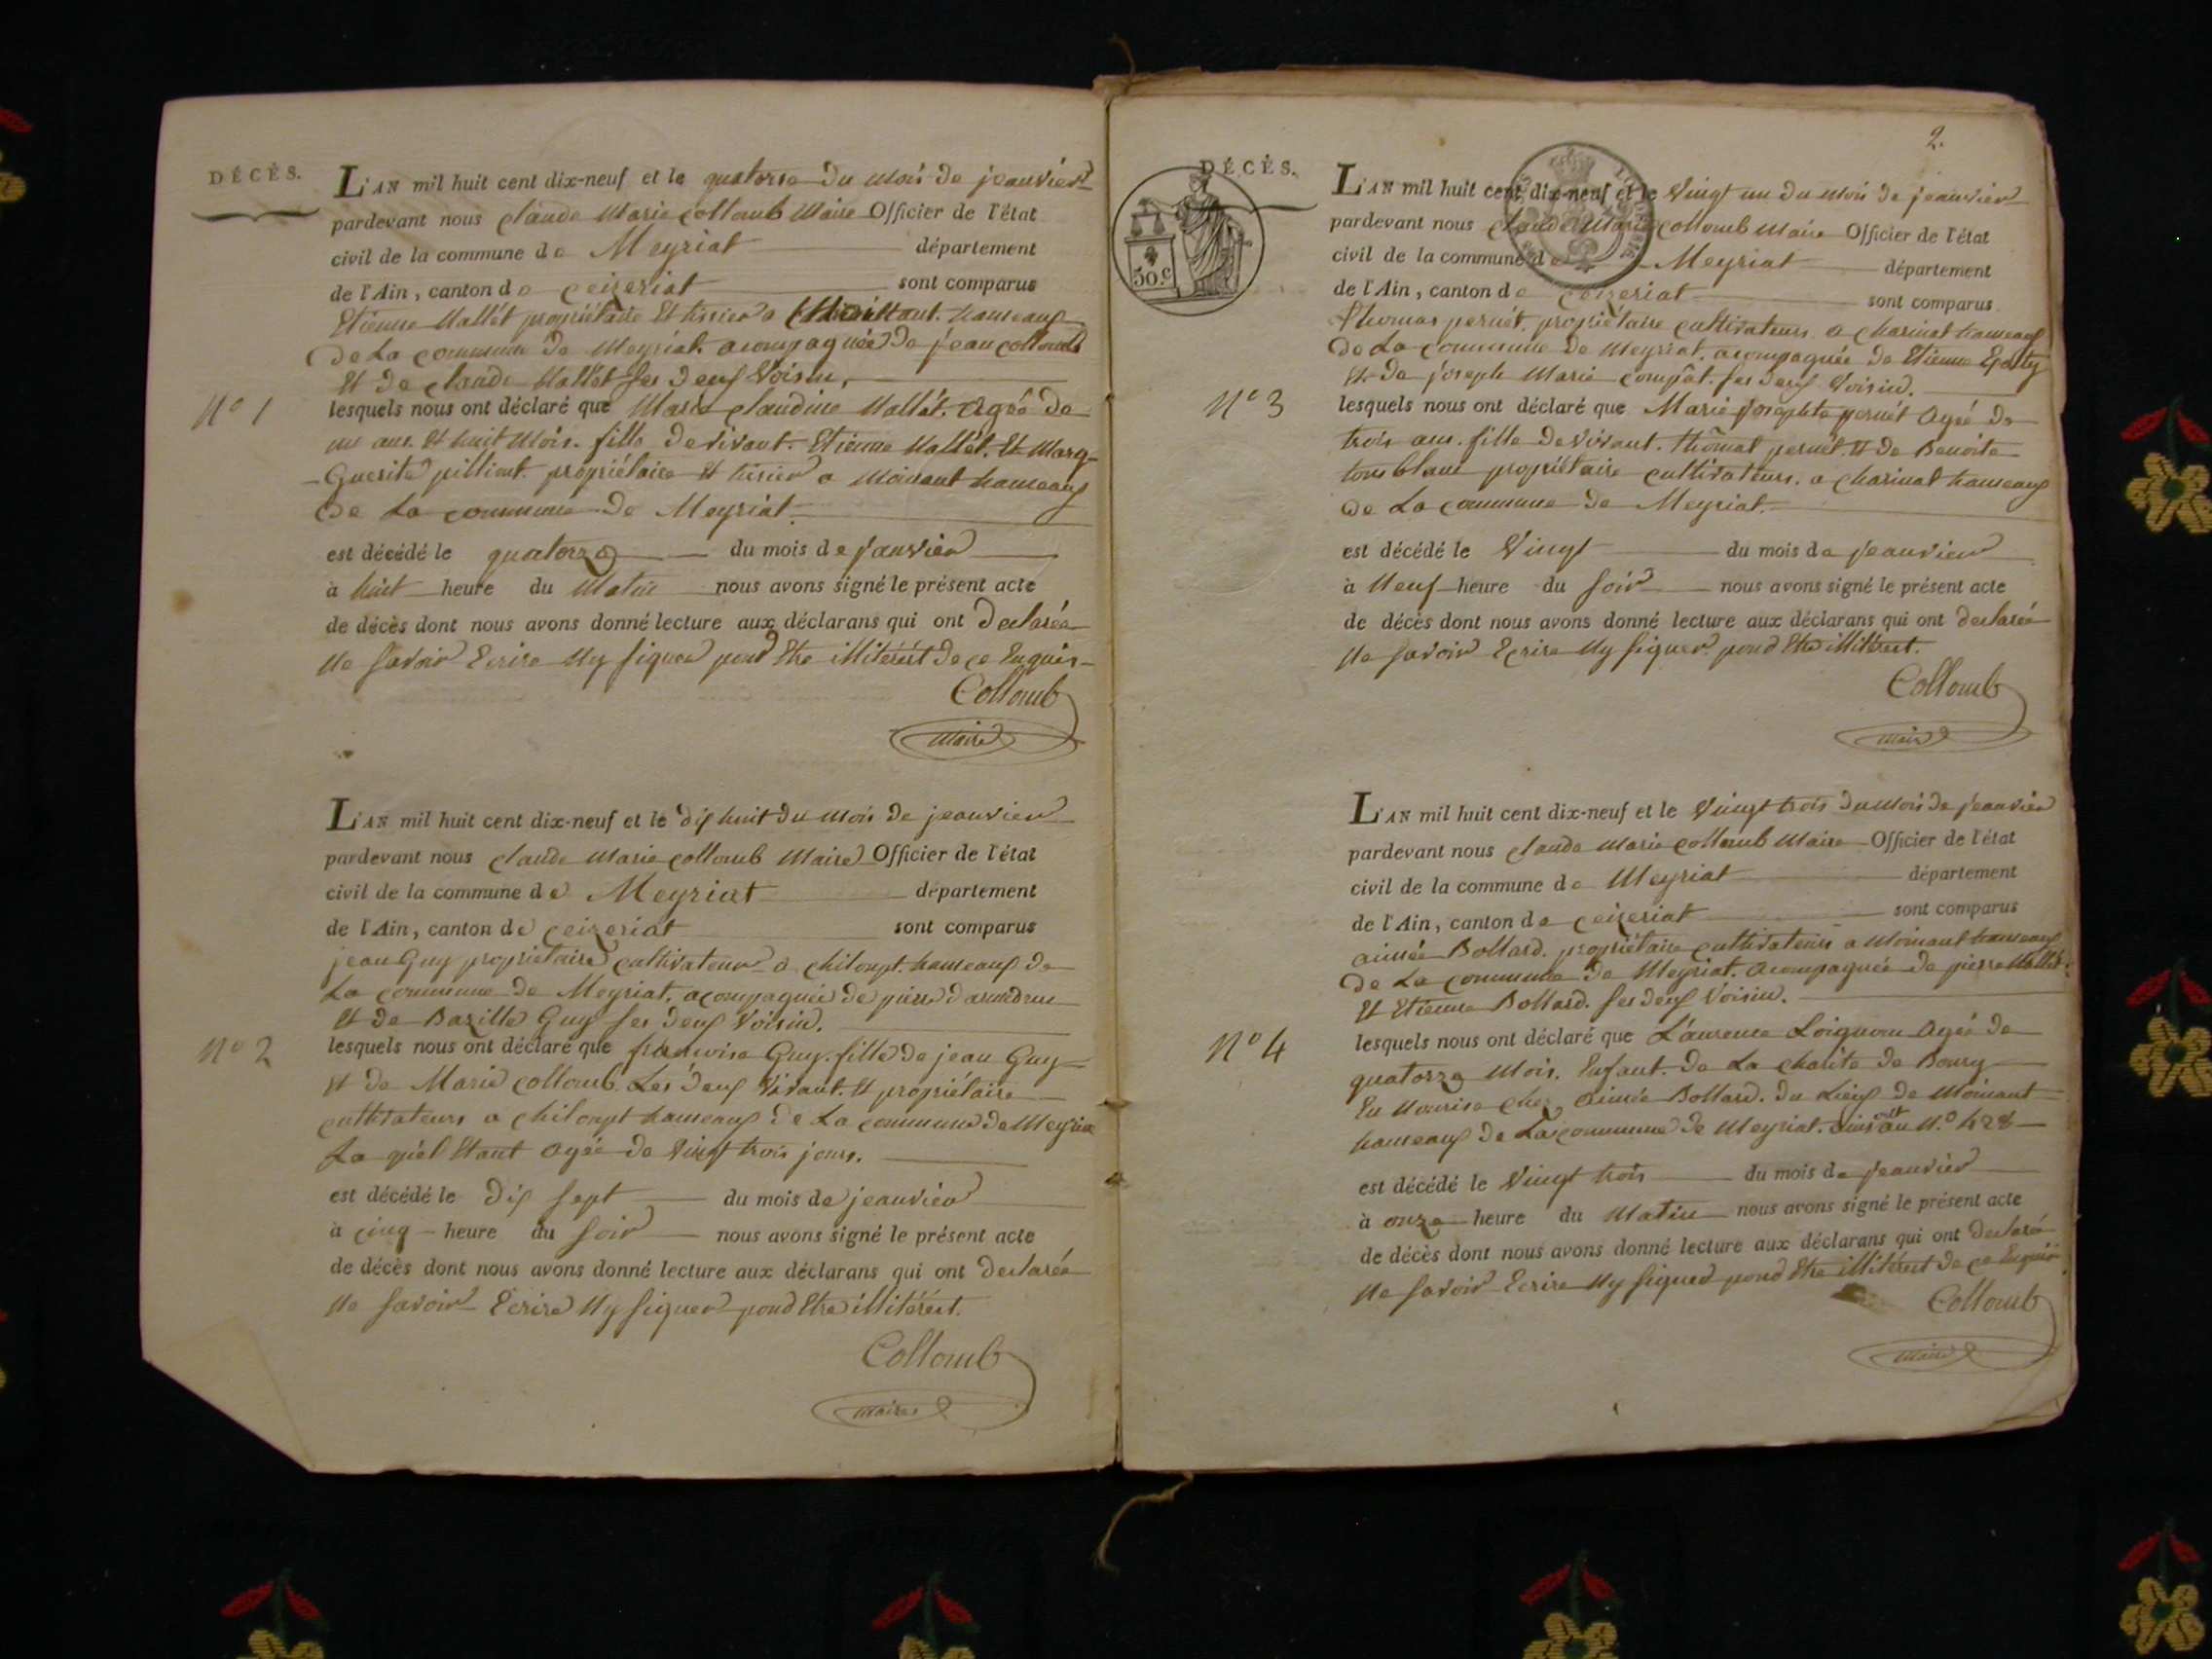 DÉCÈS.
L'AN mil huit cent dix-neuf et le quatorse du mois de jeanvier
pardevant nous claude Marie collomb Maire Officier de l'état
civil de la commune de Meyriat département
de l'Ain, canton de ceizeriat sont comparus
Etienne Mallét propriétaire Et tisier a hameaux
De La commune De Meyriat. acompagnéé De jean collomb
Et De claude Mallét Ses Deux Voisin,
N° 1
lesquels nous ont déclaré que Marie claudine Mallét. Agéé De
un ans. Et huit Mois. fille De vivant. Etienne Mallét. Et Marg-
-Guerite pillient. propriétaire Et tisier a Moinant hameaux
De La commune De Meyriat.
est décédé le quatorze du mois de janvier
à huit heure du Matin nous avons signé le présent acte
de décès dont nous avons donné lecture aux déclarans qui ont Declaréé
Ne Savoir Ecrire Ny signer pour Etre illitérét De ce Enquis-
Collomb
Maire
L'AN mil huit cent dix-neuf et le dix huit Du Mois De jeanvier
pardevant nous claude Marie collomb Maire Officier de l'état
civil de la commune de Meyriat département
de l'Ain, canton de ceizeriat sont comparus
jean Guy propriétaire cultivateur a chiloupt. hameaux De
La commune De Meyriat. acompagnéé De pierre
Et De Bazille Guy Ses Deux Voisin.
N° 2
lesquels nous ont déclaré que francoise Guy. fille De jean Guy
Et De Marie collomb. Les Deux Vivant. Et propriétaire
cultivateurs a chiloupt hameaux De La commune De Meyriat
La quél Etant Agéé De Vingt trois jours.
est décédé le Dix Sept du mois de jeanvier
à cinq heure du Soir nous avons signé le présent acte
de décès dont nous avons donné lecture aux déclarans qui ont Declaréé
Ne Savoir Ecrire Ny Signer pour Etre illitérét.
Collomb
Maire
2.
DÉCÈS.
50.c
L'AN mil huit cent dix-neuf et le Vingt un Du Mois De jeanvier
pardevant nous claude Marie collomb Maire Officier de l'état
civil de la commune de Meyriat département
de l'Ain, canton de ceizeriat sont comparus
Thomas pernét. propriétaire cultivateurs a charinat hameaux
De La commune De Meyriat. acompagnéé De Etienne
Et De joseph Marie compát. Ses Deux Voisin.
N° 3
lesquels nous ont déclaré que Marie josephte pernét Agéé De
trois ans. fille De Vivant. thomat pernét. Et De Benoite
tonblanc propriétaire cultivateurs. a charinat hameaux
De La commune De Meyriat.
est décédé le Vingt du mois de jeanvier
à Neuf heure du Soir nous avons signé le présent acte
de décès dont nous avons donné lecture aux déclarans qui ont declaréé
Ne Savoir Ecrire Ny Signer. pour Etre illitéret.
Collomb
Maire
L'AN mil huit cent dix-neuf et le Vingt trois Du Mois De jeanvier
pardevant nous claude Marie collomb Maire Officier de l'état
civil de la commune de Meyriat département
de l'Ain, canton de ceizeriat sont comparus
aimée Bollard. propriétaire cultivateurs a Moinant hameaux
De La commune De Meyriat. Acompagnéé De pierre Mallét
Et Etienne Bollard. Ses Deux Voisin.
N° 4
lesquels nous ont déclaré que Laurence Loignon Agéé De
quatorze Mois. Enfant. De La charité De Bourg
En Nourise chez Aimée Bollard. Du Lieux De Moinant
hameaux De La commune De Meyriat. N.° 428
est décédé le Vingt trois du mois de jeanvier
à onze heure du Matin nous avons signé le présent acte
de décès dont nous avons donné lecture aux déclarans qui ont declaré
Ne Savoir Ecrire Ny Signer pour Etre illitérét De ce Enquis
Collomb
Maire